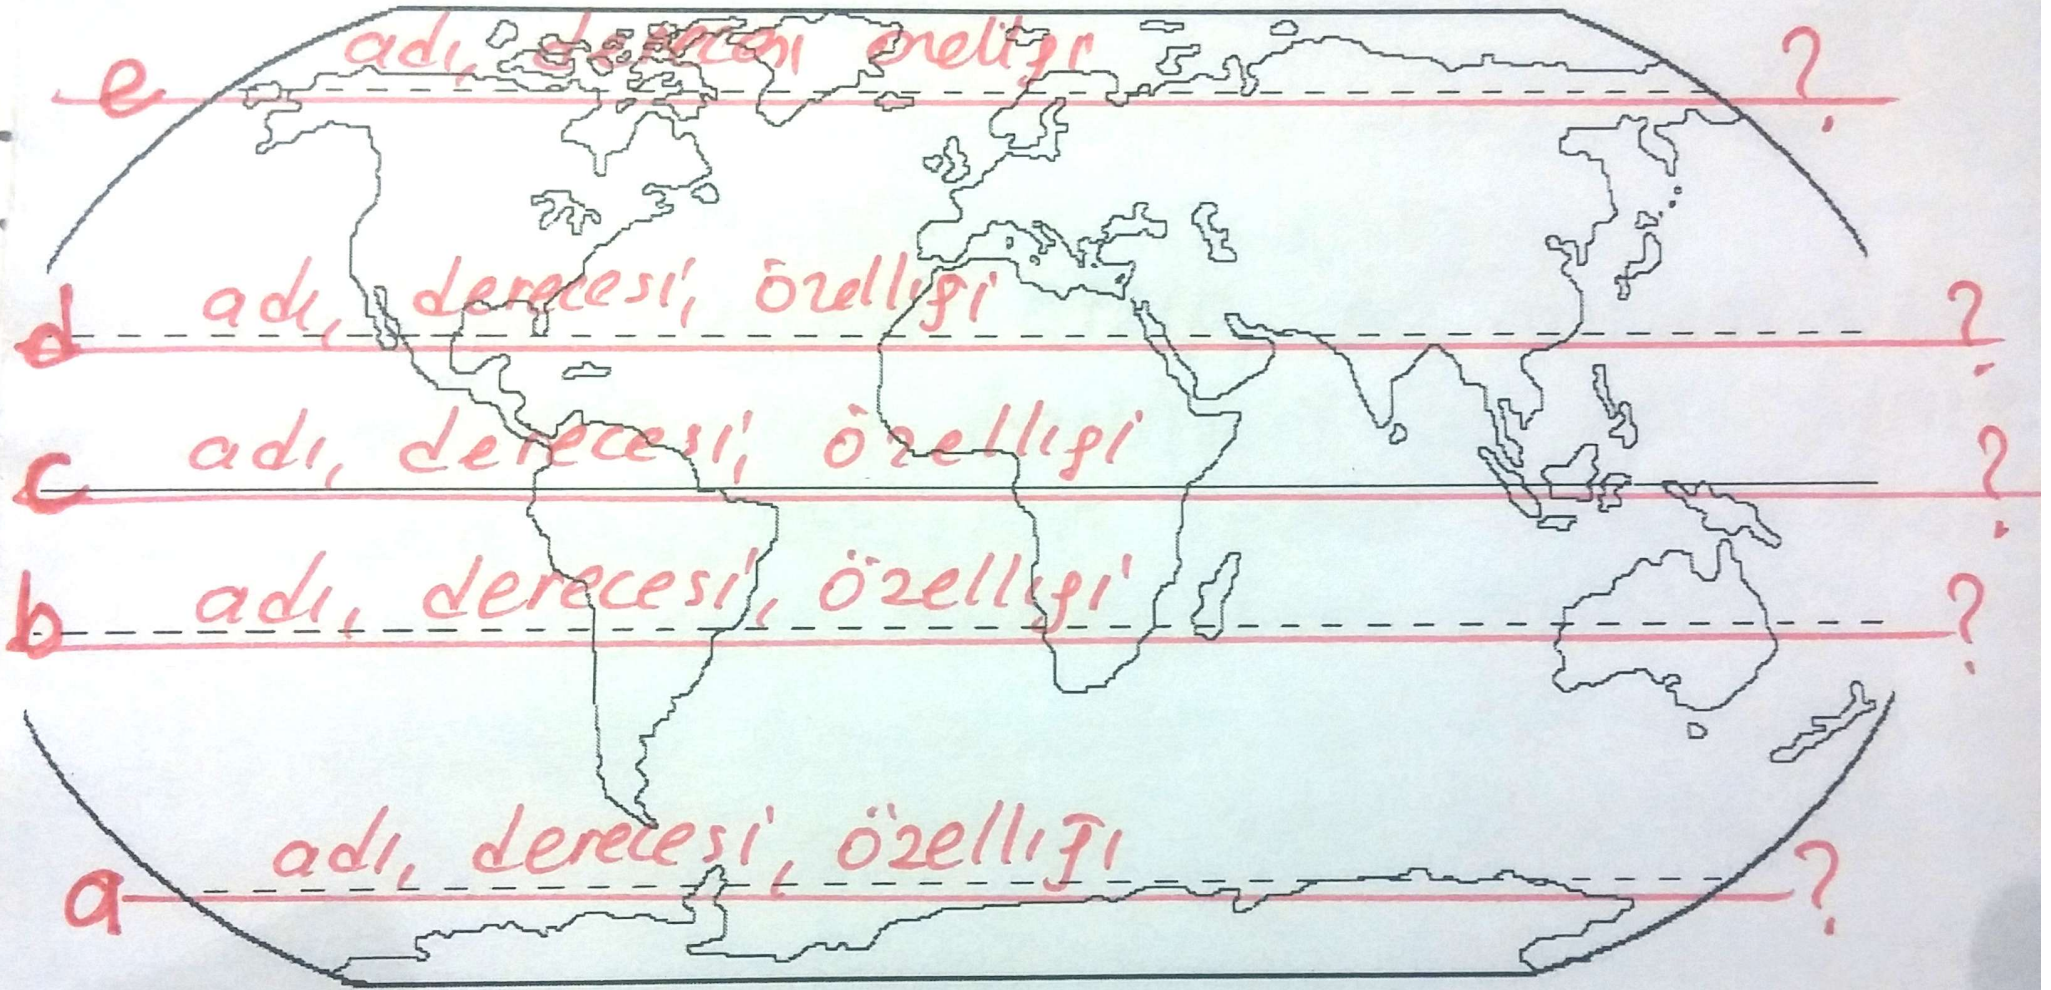 adı, derecesi özelliği
e ?
adı, derecesi, özelliği
d ?
adı, derecesi, özelliği
c ?
adı, derecesi, özelliği
b ?
adı, derecesi, özelliği
a ?